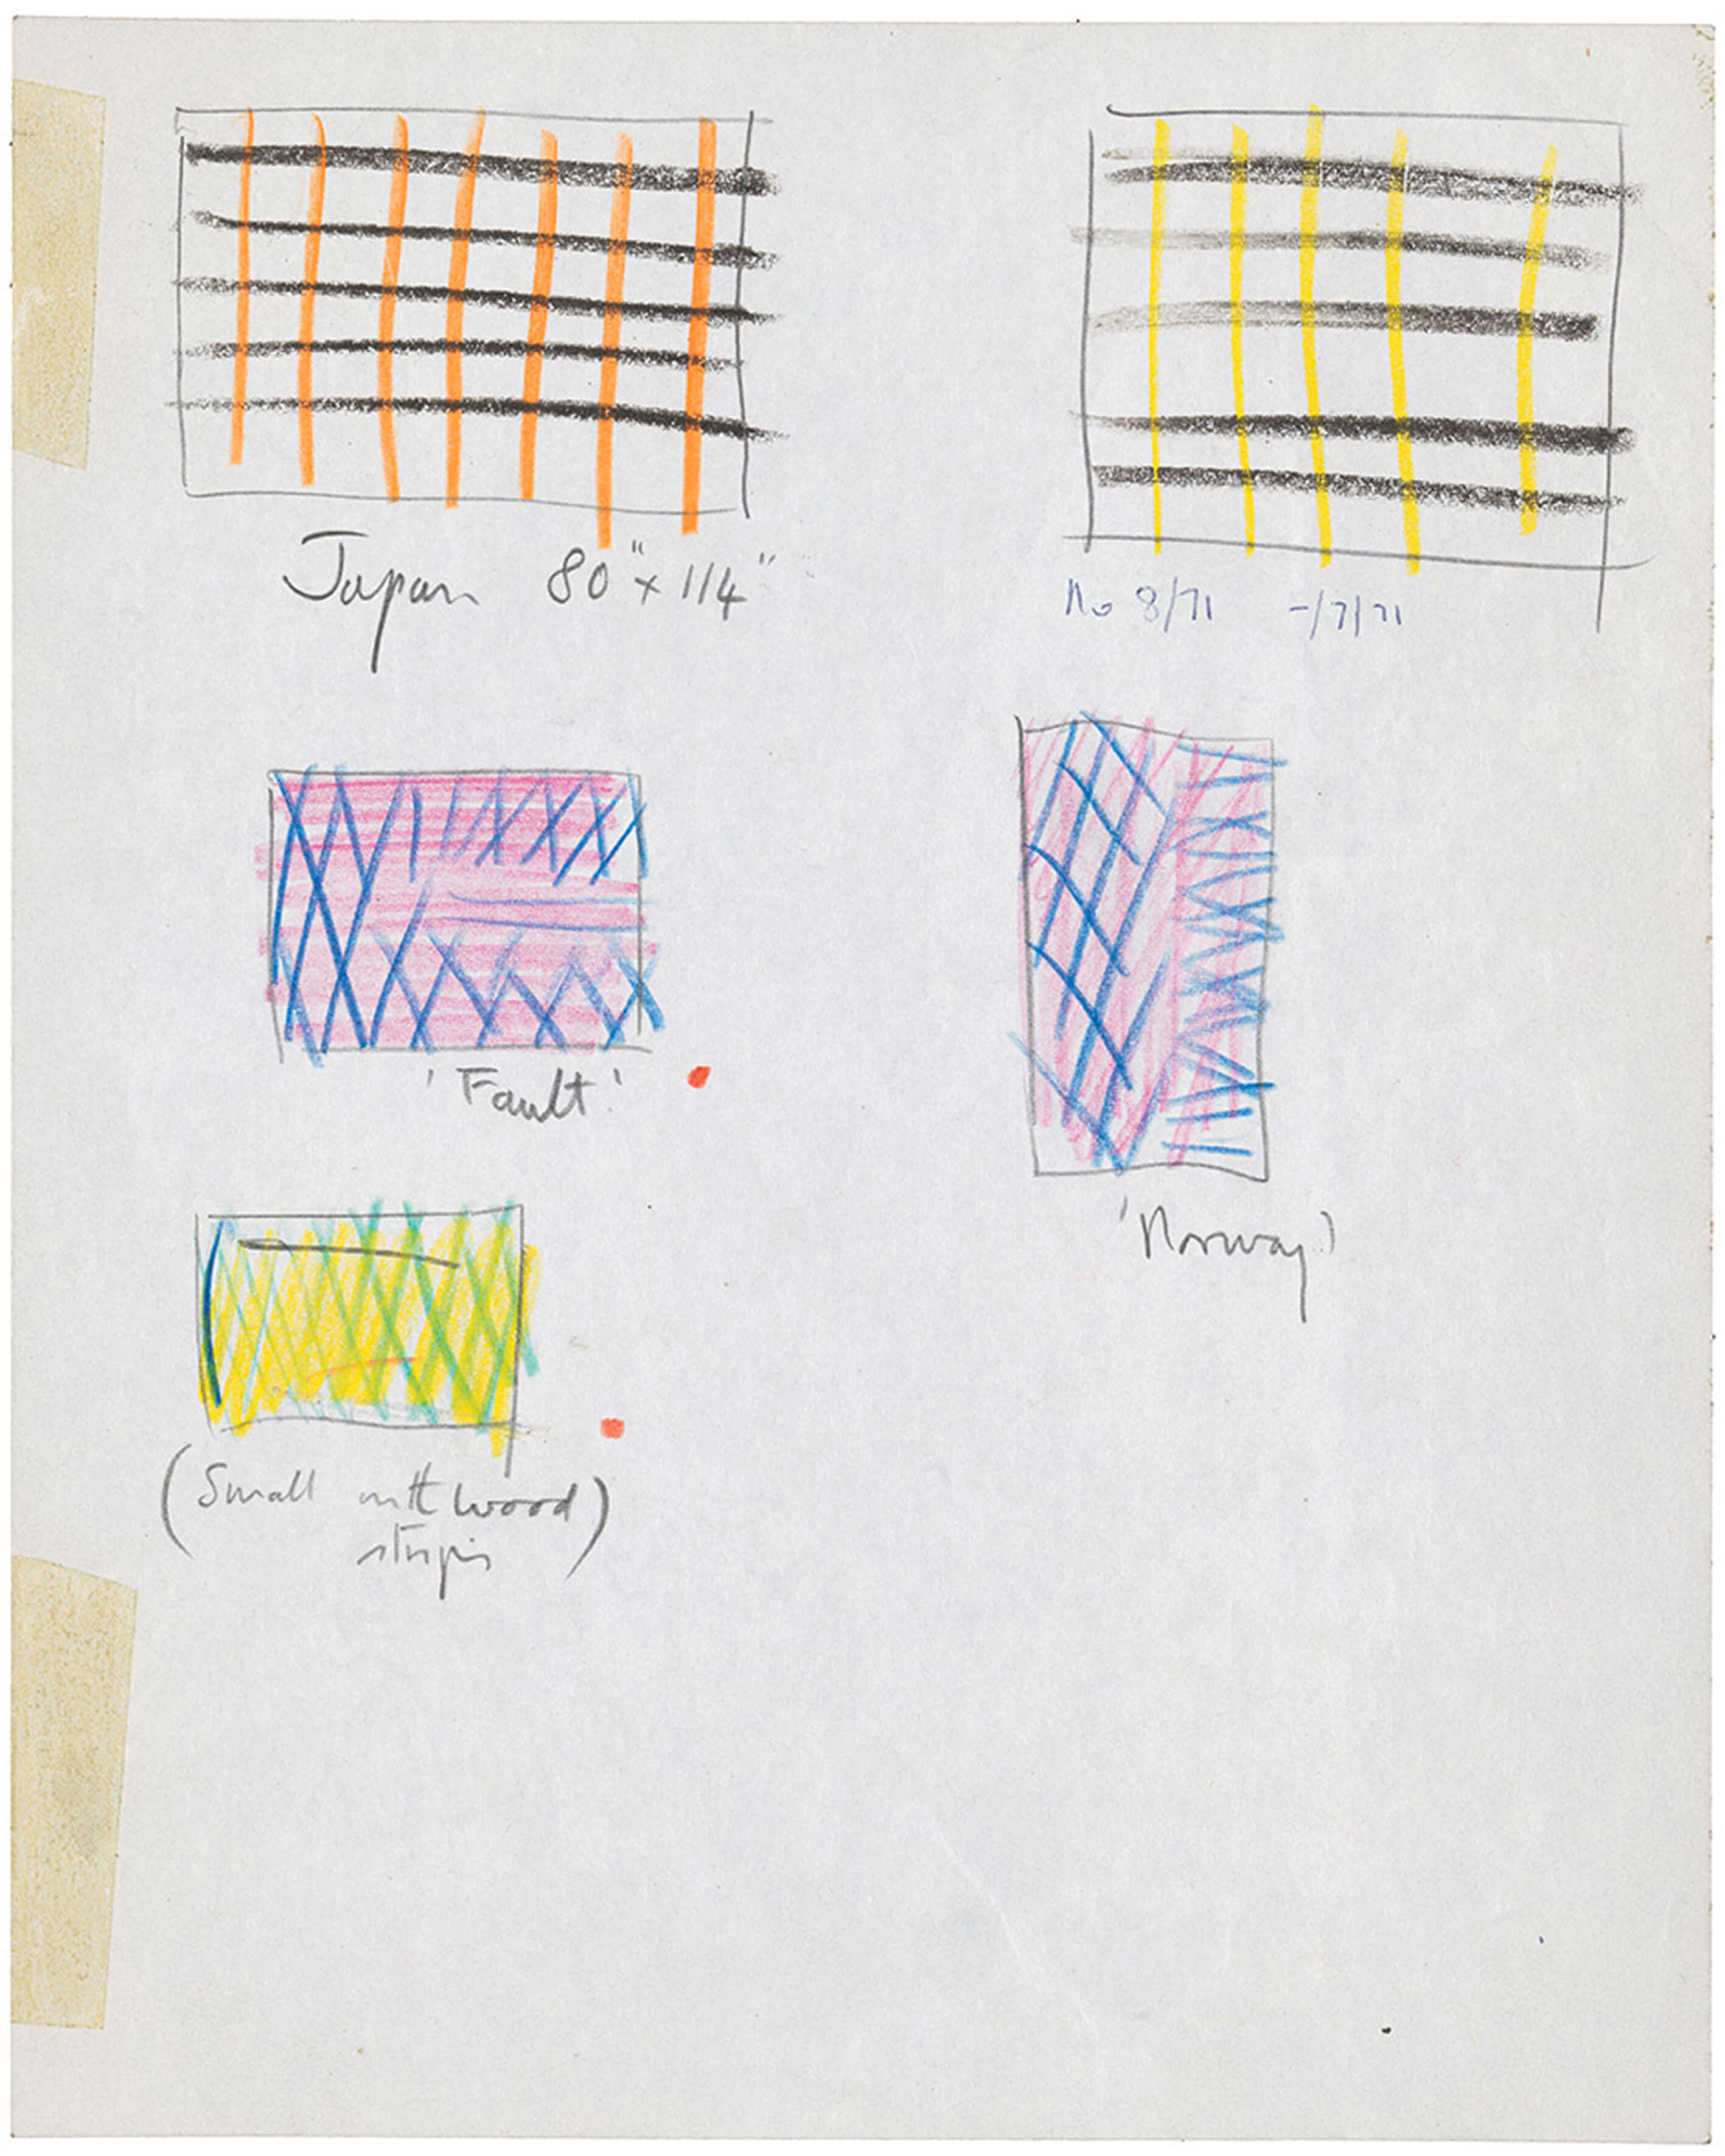 Japan 80" x 114"
No 8/71 -/7/71
'Fault'
'Norway'
(Small with wood)
strips